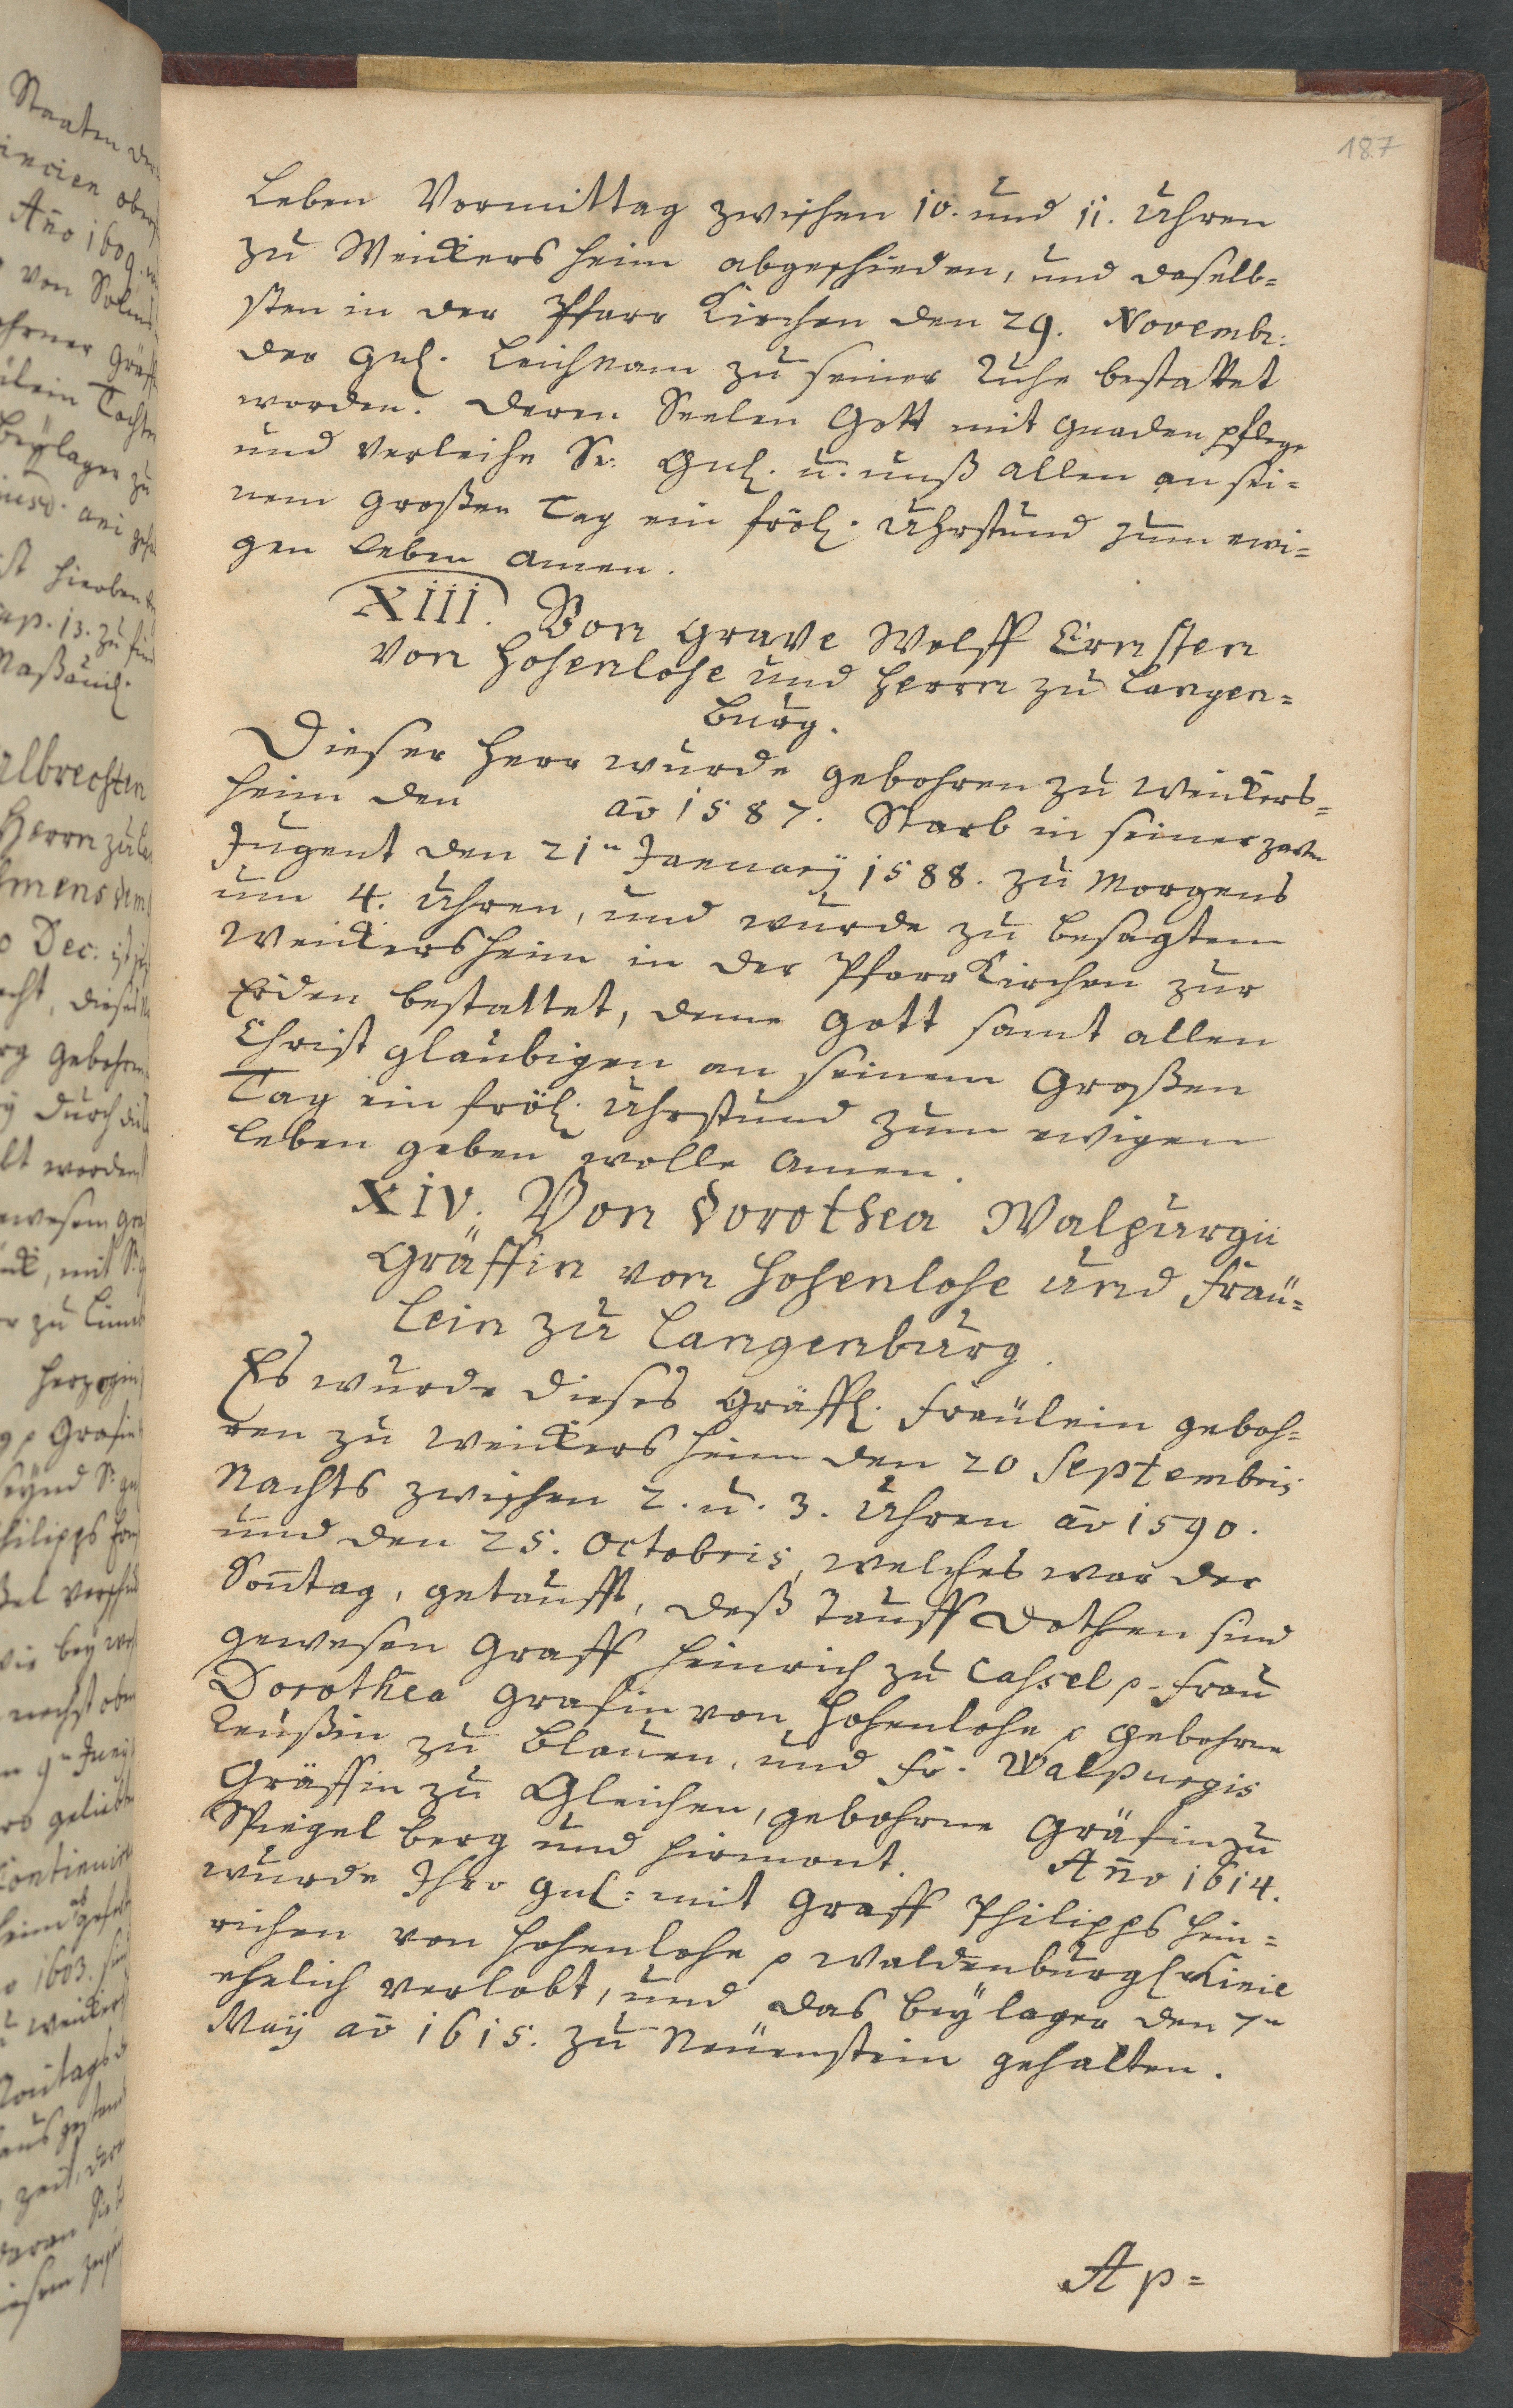 187
Leben Vormittag zwischen 10. und 11. Uhren
zu Weickersheim abgeschieden, und daselb=
sten in der Pfarr Kirchen den 29. Novembr:
der Gnl. Leichnam zu seiner Ruhe bestattet
worden. Deren Seelen Gott mit Gnaden pflege
und verleihe Sr. Gnl. u. unß allen an sei=
nem großen Tag ein fröl. Uhrstund zum ewi=
gen Leben Amen.
XIII. Von Grave Wolff Ernsten
Von Hohenlohe und Herrn zu Langen=
burg.
Dieser Herr wurde gebohren zu Weickers=
heim den ao 1587. Starb in seiner zarten
Jugent den 21n January 1588. zu Morgens
um 4. Uhren, und wurde zu besagtem
Weickersheim in der Pfarr Kirchen zur
Erden bestattet, deme Gott samt allen
Christ glaubigen an seinem Großen
Tag ein fröl. Uhrstund zum ewigen
Leben geben wolle Amen.
XIV. Von Dorothea Walpurgii
Gräffin von Hohenlohe und Fräu=
lein zu Langenburg.
Es wurde dieses Gräffl. Fräulein geboh=
ren zu Weickersheim den 20 Septembris
Nachts zwischen 2. u. 3. Uhren ao 1590.
und den 25. Octobris, welches war der
Sontag, getaufft, deß Tauff Dothen sind
gewesen Graff Heinrich zu Caßsel p. Frau
Dorothea Grafin von Hohenlohe p gebohrne
Reußin zu Blauen, und Fr. Walpurgis
Gräffin zu Gleichen, gebohrne Gräfin zu
Spiegelberg und Pirmont. Anno 1614.
wurde Ihro Gnl: mit Graff Philipps Hein=
richen von Hohenlohe p Waldenburgl. Linie
ehelich verlobt, und das Beylager den 7n
Maij ao 1615. zu Neuenstein gehalten.
Ap=